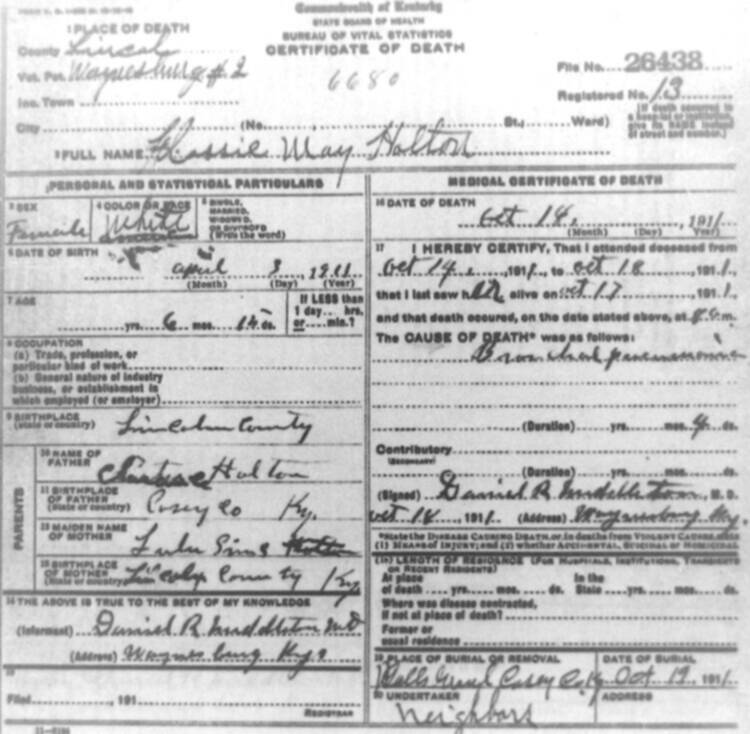 Commonwealth of Kentucky
STATE BOARD OF HEALTH
BUREAU OF VITAL STATISTICS
CERTIFICATE OF DEATH
1 PLACE OF DEATH
County Lincoln
Vot. Pct. Waynesburg #2
Inc. Town
City (No. St., Ward)
6680
File No. 26438
Registered No. 13
(If death occurred in a hospital or institution, give its NAME instead of street and number.)
2 FULL NAME Flossie May Holton
PERSONAL AND STATISTICAL PARTICULARS
3 SEX Female
4 COLOR OR RACE White
5 SINGLE, MARRIED, WIDOWED, OR DIVORCED (Write the word)
6 DATE OF BIRTH
April 3, 1911
(Month) (Day) (Year)
7 AGE
yrs. 6 mos. 15 ds.
If LESS than 1 day.... hrs. or.....min.?
8 OCCUPATION
(a) Trade, profession, or particular kind of work
(b) General nature of industry business, or establishment in which employed (or employer)
9 BIRTHPLACE (State or country) Lincoln County
PARENTS
10 NAME OF FATHER Holton
11 BIRTHPLACE OF FATHER (State or country) Casey Co Ky.
12 MAIDEN NAME OF MOTHER Lulu Sims Holton
13 BIRTHPLACE OF MOTHER (State or country) Lincoln County Ky
14 THE ABOVE IS TRUE TO THE BEST OF MY KNOWLEDGE
(Informant) Daniel R Middleton MD
(Address) Waynesburg Ky
15
Filed , 191
REGISTRAR
MEDICAL CERTIFICATE OF DEATH
16 DATE OF DEATH
Oct 18, 1911
(Month) (Day) (Year)
17 I HEREBY CERTIFY, That I attended deceased from
Oct 14, 1911, to Oct 18 1911,
that I last saw alive on Oct 17 1911,
and that death occured, on the date stated above, at 8 a m.
The CAUSE OF DEATH* was as follows:
Bronchial pneumonia
(Duration) yrs. mos. 4 ds.
Contributory
(SECONDARY)
(Duration) yrs. mos. ds.
(Signed) Daniel R Middleton, M. D.
Oct 18, 1911 (Address) Waynesburg Ky
*State the DISEASE CAUSING DEATH, or, in deaths from VIOLENT CAUSES, state (1) MEANS OF INJURY; and (2) whether ACCIDENTAL, SUICIDAL or HOMICIDAL
18 LENGTH OF RESIDENCE (FOR HOSPITALS, INSTITUTIONS, TRANSIENTS OR RECENT RESIDENTS)
At place of death yrs. mos. ds. In the State yrs. mos. ds.
Where was disease contracted, if not at place of death?
Former or usual residence
19 PLACE OF BURIAL OR REMOVAL Casey Co Ky
DATE OF BURIAL Oct 19 1911
20 UNDERTAKER neighbors
ADDRESS